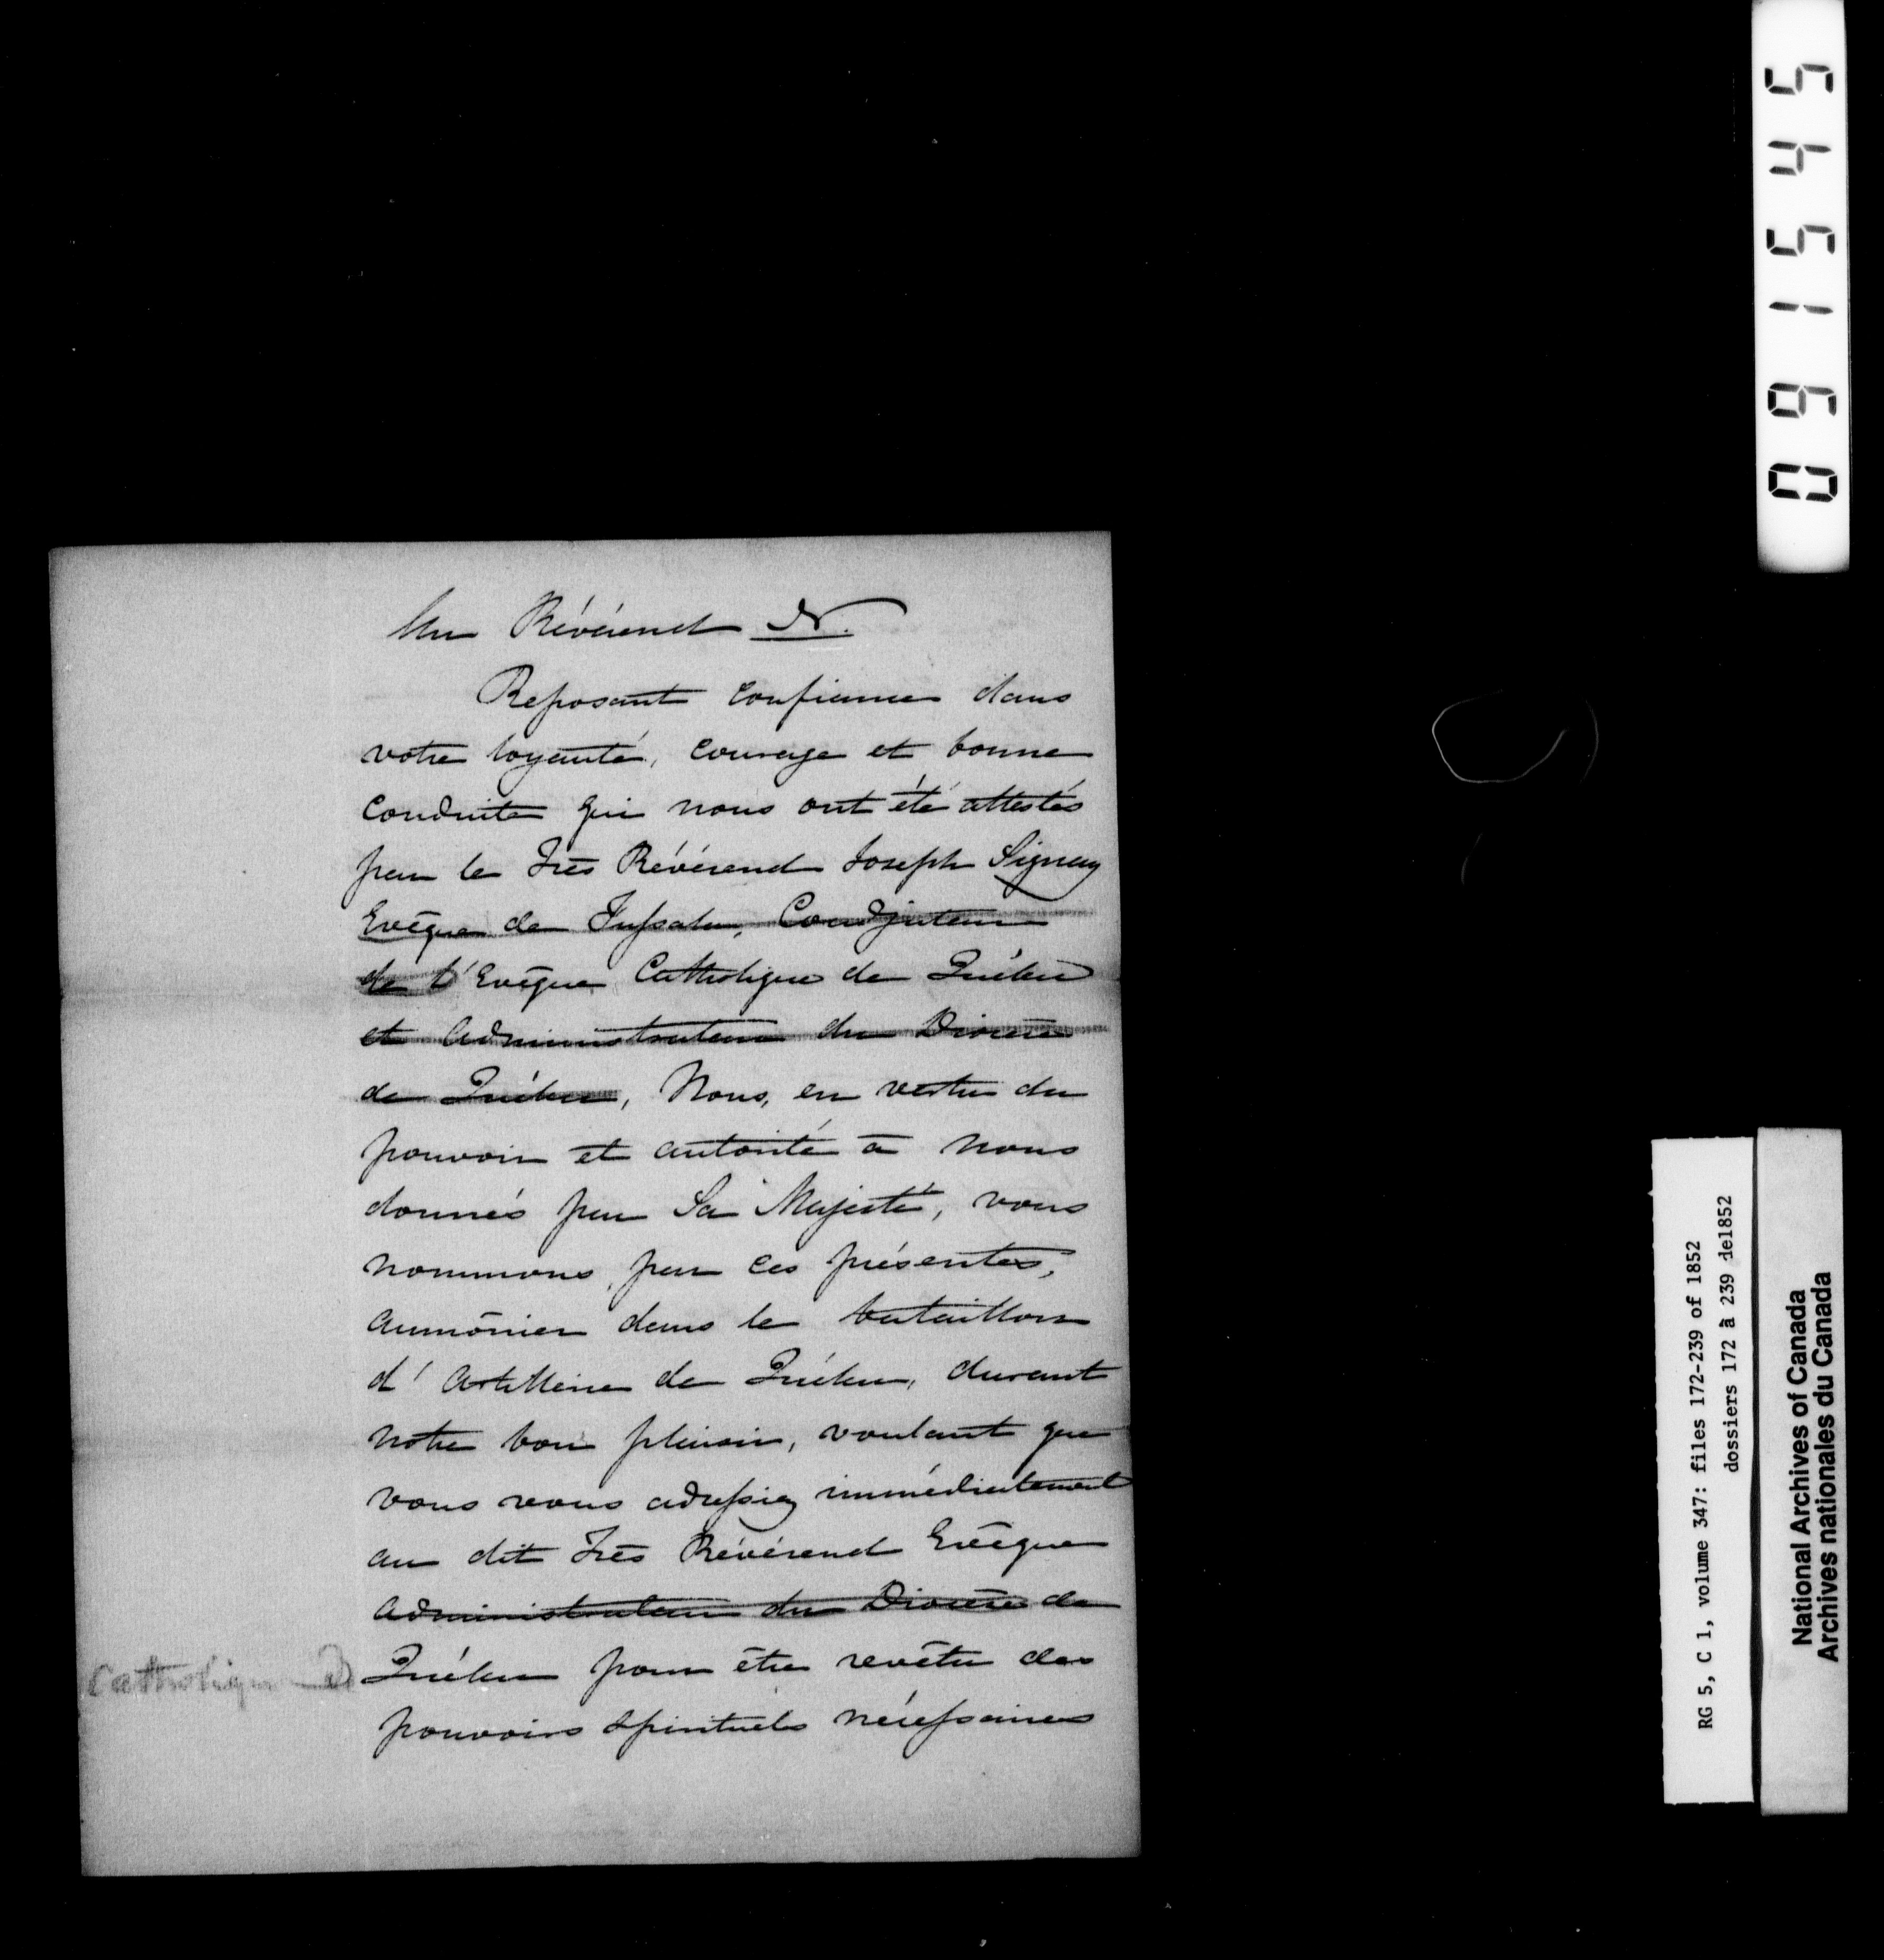 Au Révérend N.
Reposant confiance dans
votre loyauté, courage et bonne
conduite qui nous ont été attestés
par le Très Révérend Joseph Signay
Evêque de Fussala, Coadjuteur
de l'Evêque Catholique de Québec
et Administrateur du Diocèse
de Québec, Nous, en vertu du
pouvoir et autorité à nous
donnés par Sa Majesté, vous
nommons, par ces présentes,
aumônier dans le bataillon
d'Artillerie de Québec, durant
notre bon plaisir, voulant que
vous vous adressiez immédiatement
au dit Très Révérend Evêque
Administrateur du Diocèse de
Catholique de Québec pour être revêtu des
pouvoirs spirituels nécessaires
091545
RG 5, C 1, volume 347: files 172-239 of 1852
dossiers 172 à 239 de1852
National Archives of Canada
Archives nationales du Canada